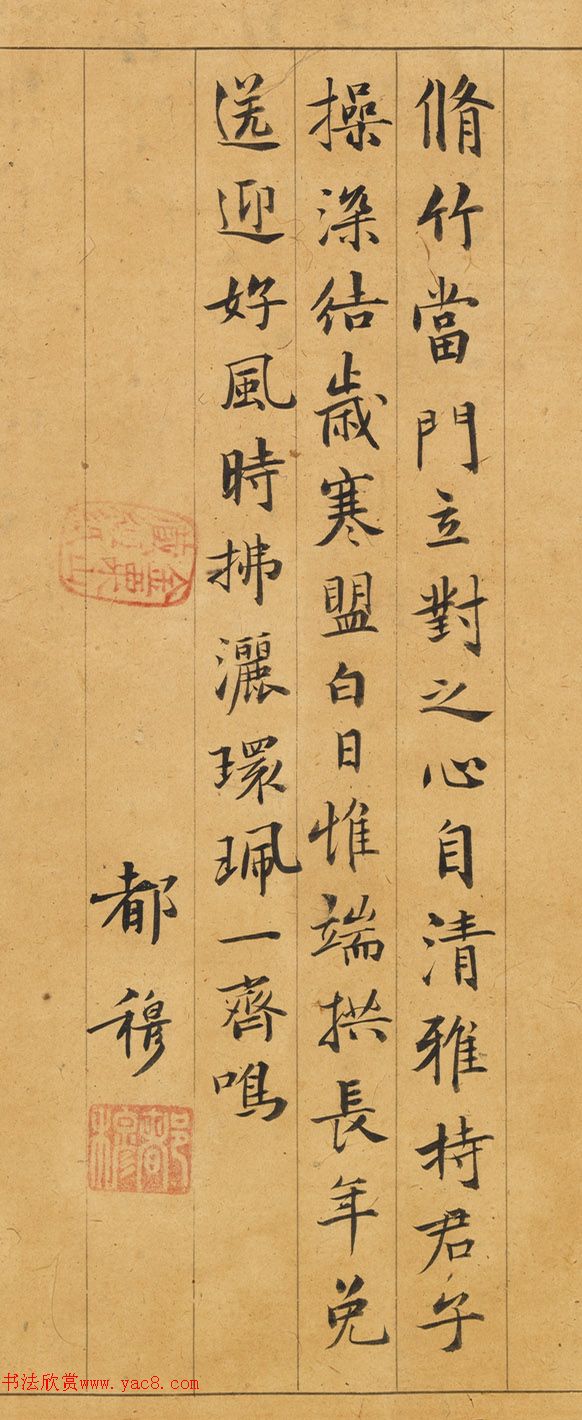 脩竹當門立對之心自清雅持君子
操深結歲寒盟白日惟端拱長年免
送迎好風時拂灑環珮一齊鳴
都穆
都穆
书法欣赏www.yac8.com